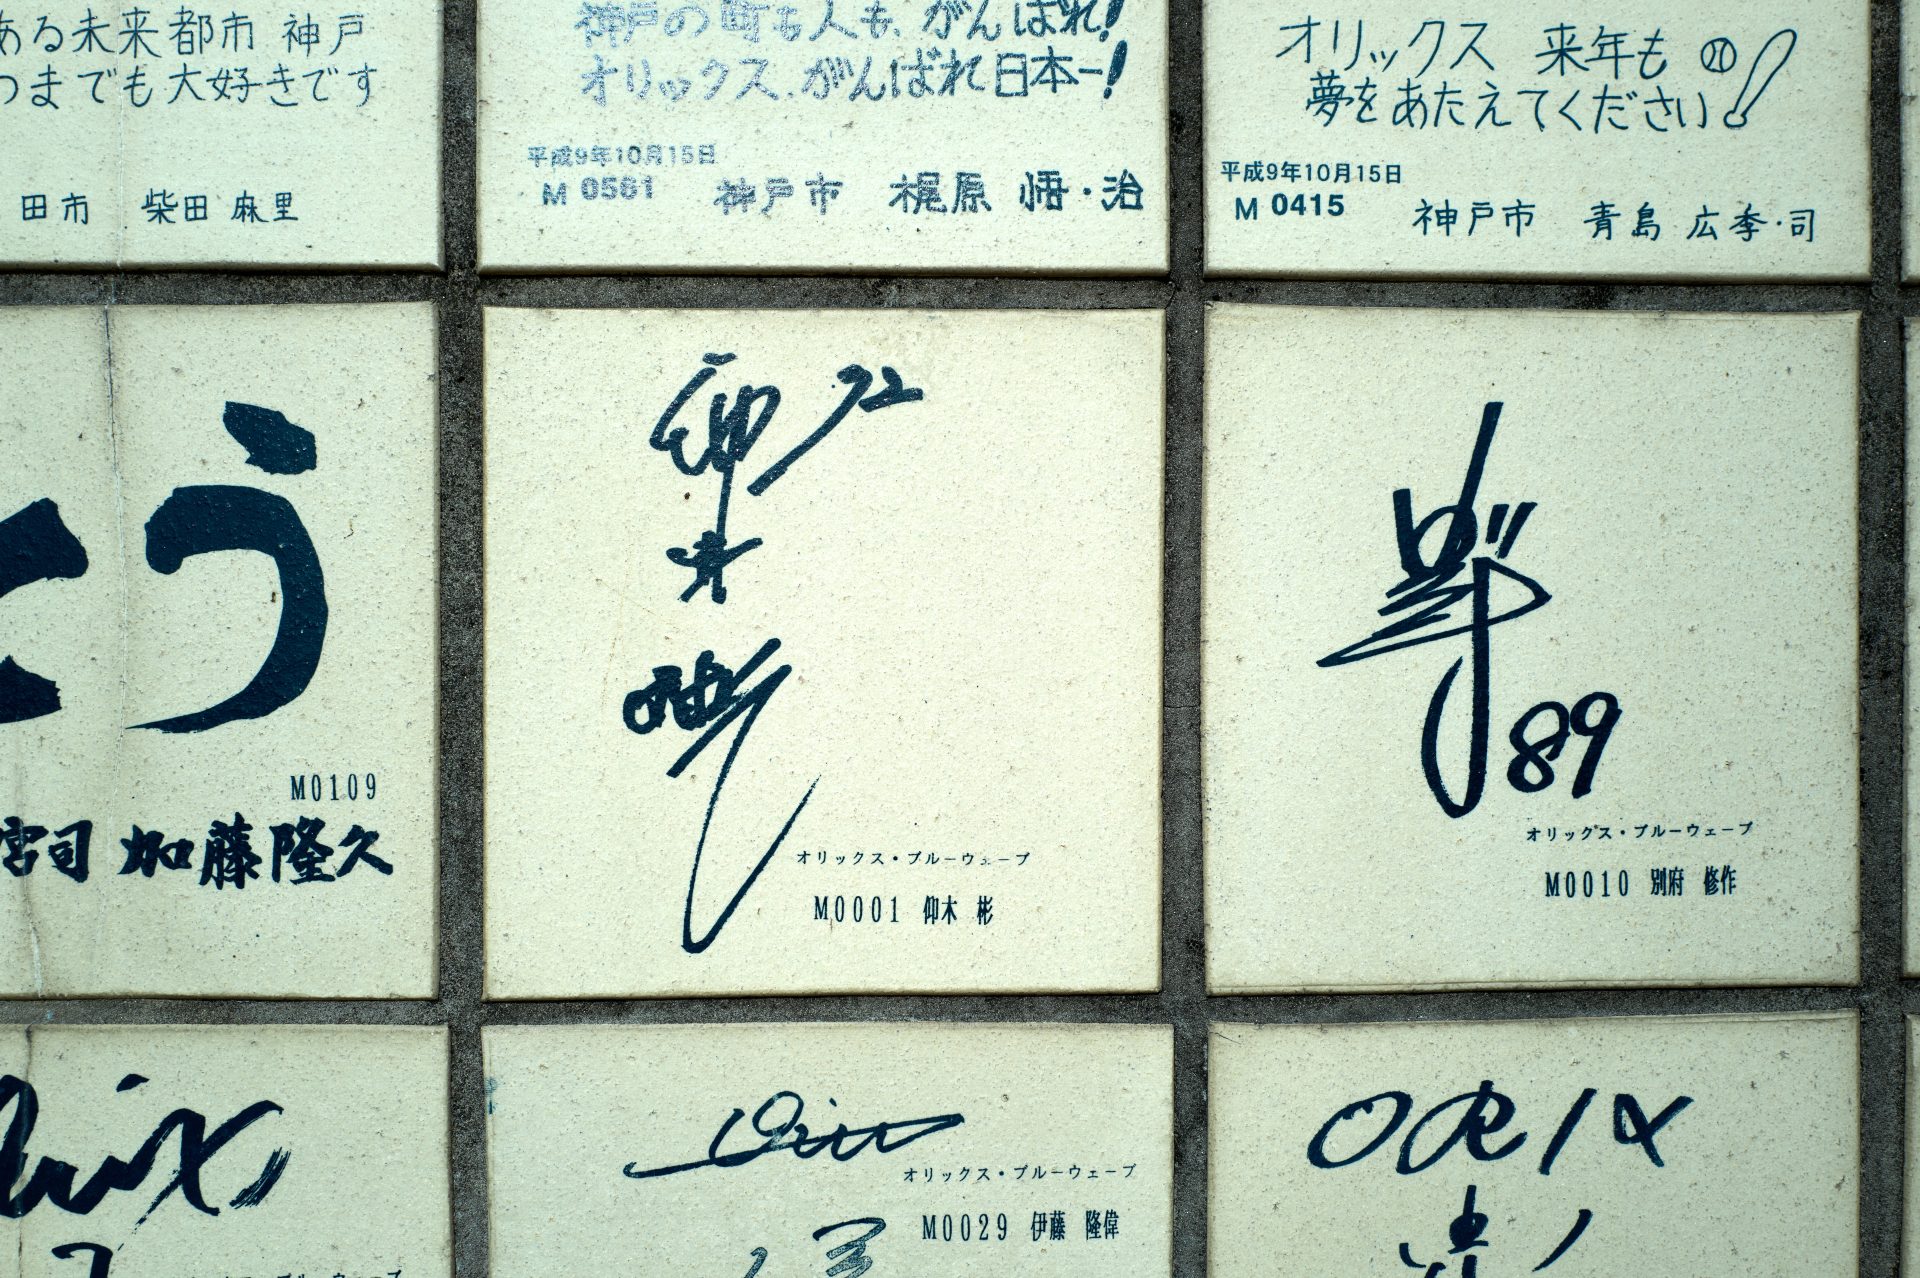 ある未来都市 神戸
つまでも大好きです
田市 柴田 麻里
神戸の町も人も、がんばれ!
オリックス、がんばれ日本一!
平成9年10月15日
M 0581 神戸市 梶原 悟・治
オリックス 来年も
夢をあたえてください!
平成9年10月15日
M 0415 神戸市 青島 広季・司
とう
M0109
宮司 加藤隆久
仰木
彬
72
オリックス・ブルーウェーブ
M0001 仰木 彬
89
オリックス・ブルーウェーブ
M0010 別府 修作
オリックス・ブルーウェーブ
M0029 伊藤 隆偉
ORIX